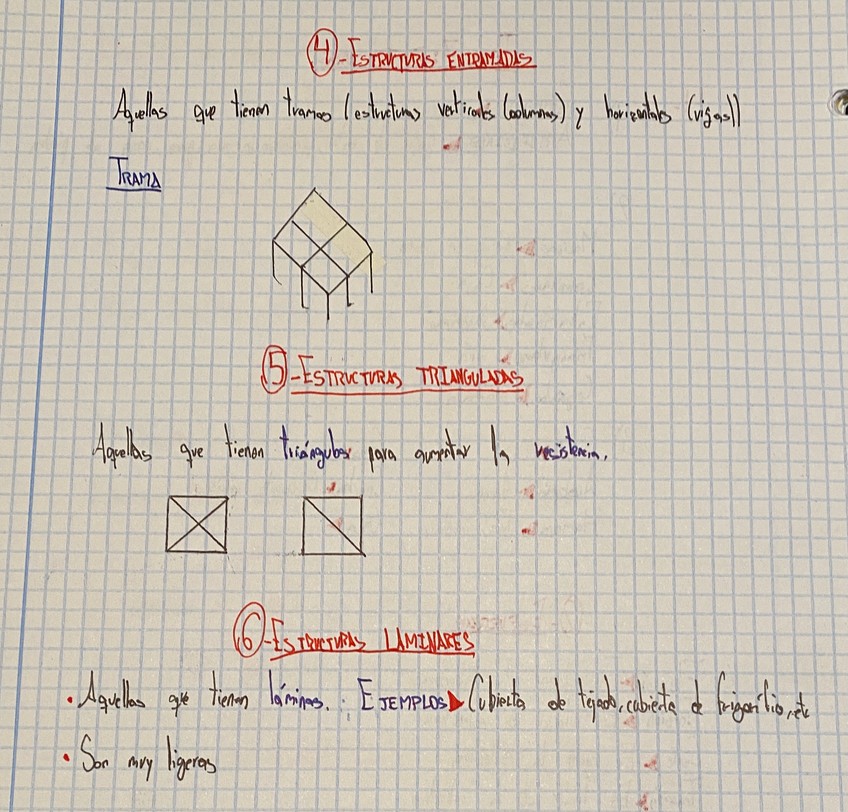 4-ESTRUCTURAS ENTRAMADAS
Aquellas que tienen tramas (estructuras verticales (columnas) y horizontales (vigas))
TRAMA
5-ESTRUCTURAS TRIANGULADAS
Aquellas que tienen triángulos para aumentar la resistencia.
6-ESTRUCTURAS LAMINARES
• Aquellas que tienen láminas. EJEMPLOS Cubierta de tejado, cubierta de frigorífio, etc
• Son muy ligeras